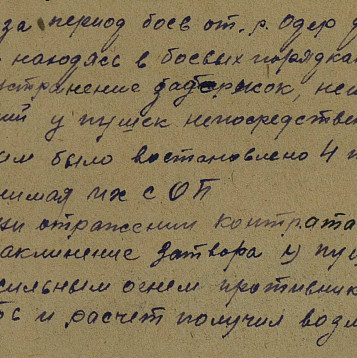 за период боев от р. Одер д
находясь в боевых порядка
странение задержок, неи
ий у пушек непосредствен
им было востановлено 4 п
нимая их с ОП
ри отражении контрата
аклинение затвора
сильным огнем противник
ть и расчет получил возм